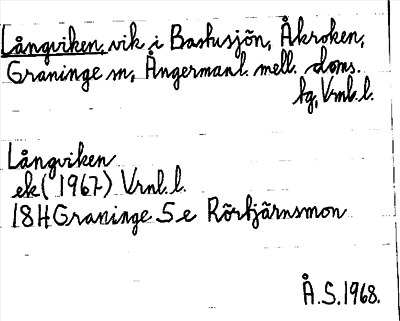 Långviken, vik i Bastusjön, Åkroken,
Graninge sn, Ångermanl. mell. doms.
fg, Vrnl. l.
Långviken
ek (1967) Vrnl. l.
18H Graninge 5 e Rörtjärnsmon
Å.S. 1968.